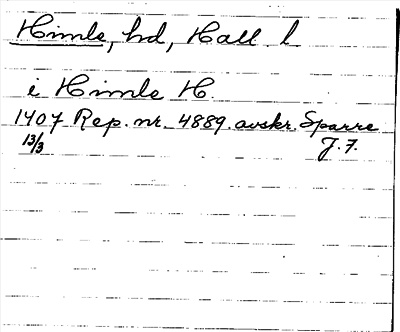 Himle, hd, Hall. l
i Himle H.
1407 Rep. nr. 4889. avskr. Sparre
13/3 J. 7.